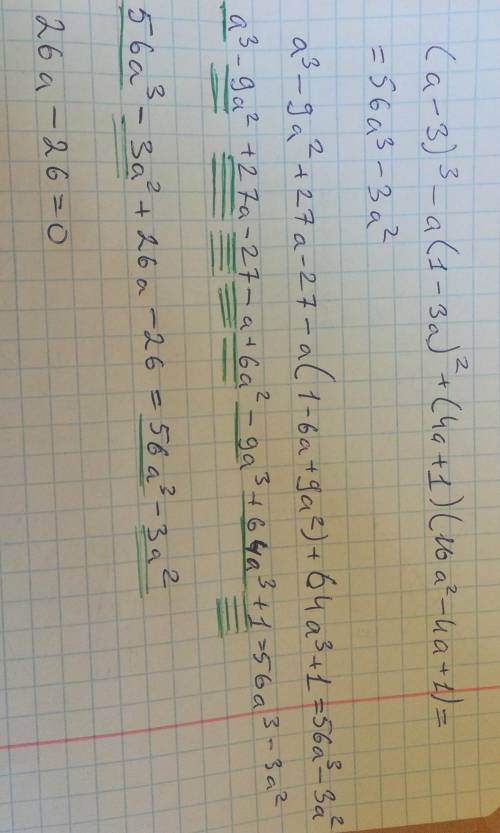 (a-3)³-a(1-3a)²+(4a+1)(16a²-4a+1)=
=56a³-3a²
a³-9a²+27a-27-a(1-6a+9a²)+64a³+1=56a³-3a²
a³-9a²+27a-27-a+6a²-9a³+64a³+1=56a³-3a²
56a³-3a²+26a-26=56a³-3a²
26a-26=0